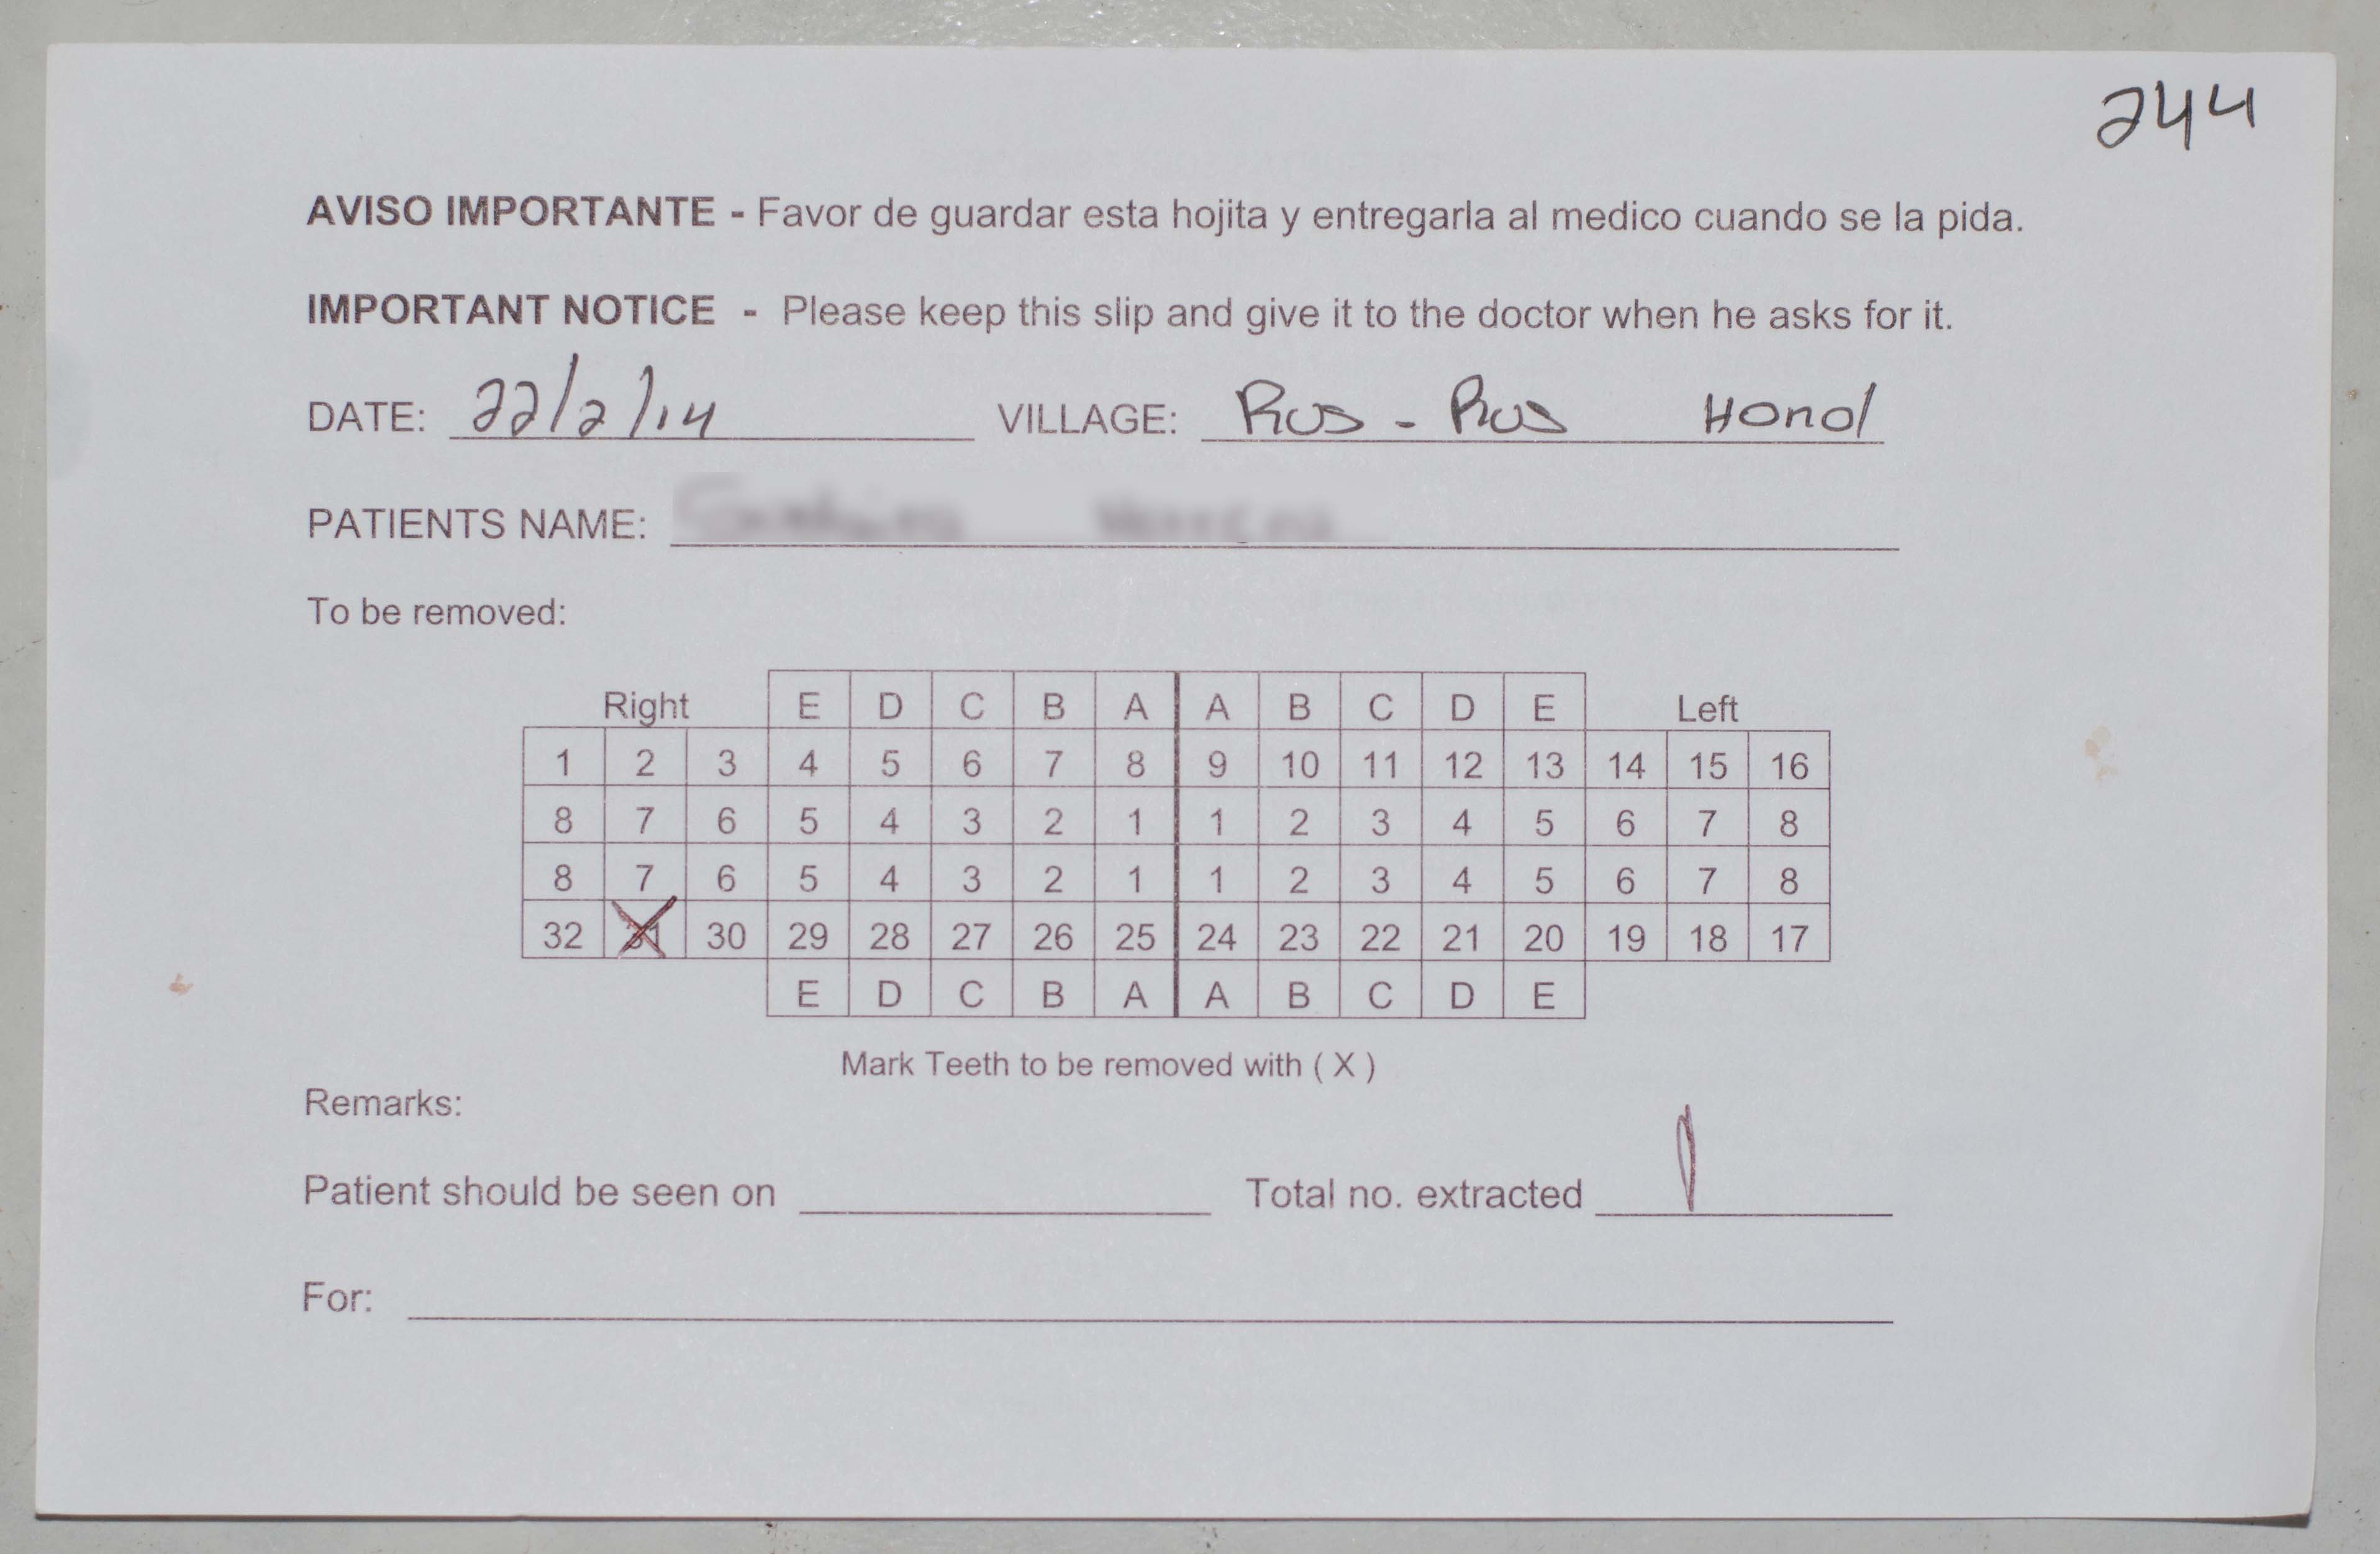 244
AVISO IMPORTANTE - Favor de guardar esta hojita y entregarla al medico cuando se la pida.
IMPORTANT NOTICE - Please keep this slip and give it to the doctor when he asks for it.
DATE: 22/2/14 VILLAGE: Rus - Rus Hond
PATIENTS NAME:
To be removed:
Right E D C B A A B C D E Left
1 2 3 4 5 6 7 8 9 10 11 12 13 14 15 16
8 7 6 5 4 3 2 1 1 2 3 4 5 6 7 8
8 7 6 5 4 3 2 1 1 2 3 4 5 6 7 8
32 31 30 29 28 27 26 25 24 23 22 21 20 19 18 17
E D C B A A B C D E
Mark Teeth to be removed with ( X )
Remarks:
Patient should be seen on Total no. extracted 1
For: